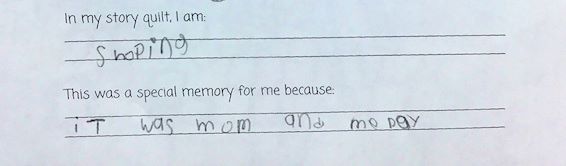 In my story quilt, I am:
Shoping
This was a special memory for me because:
iT was mom and me day